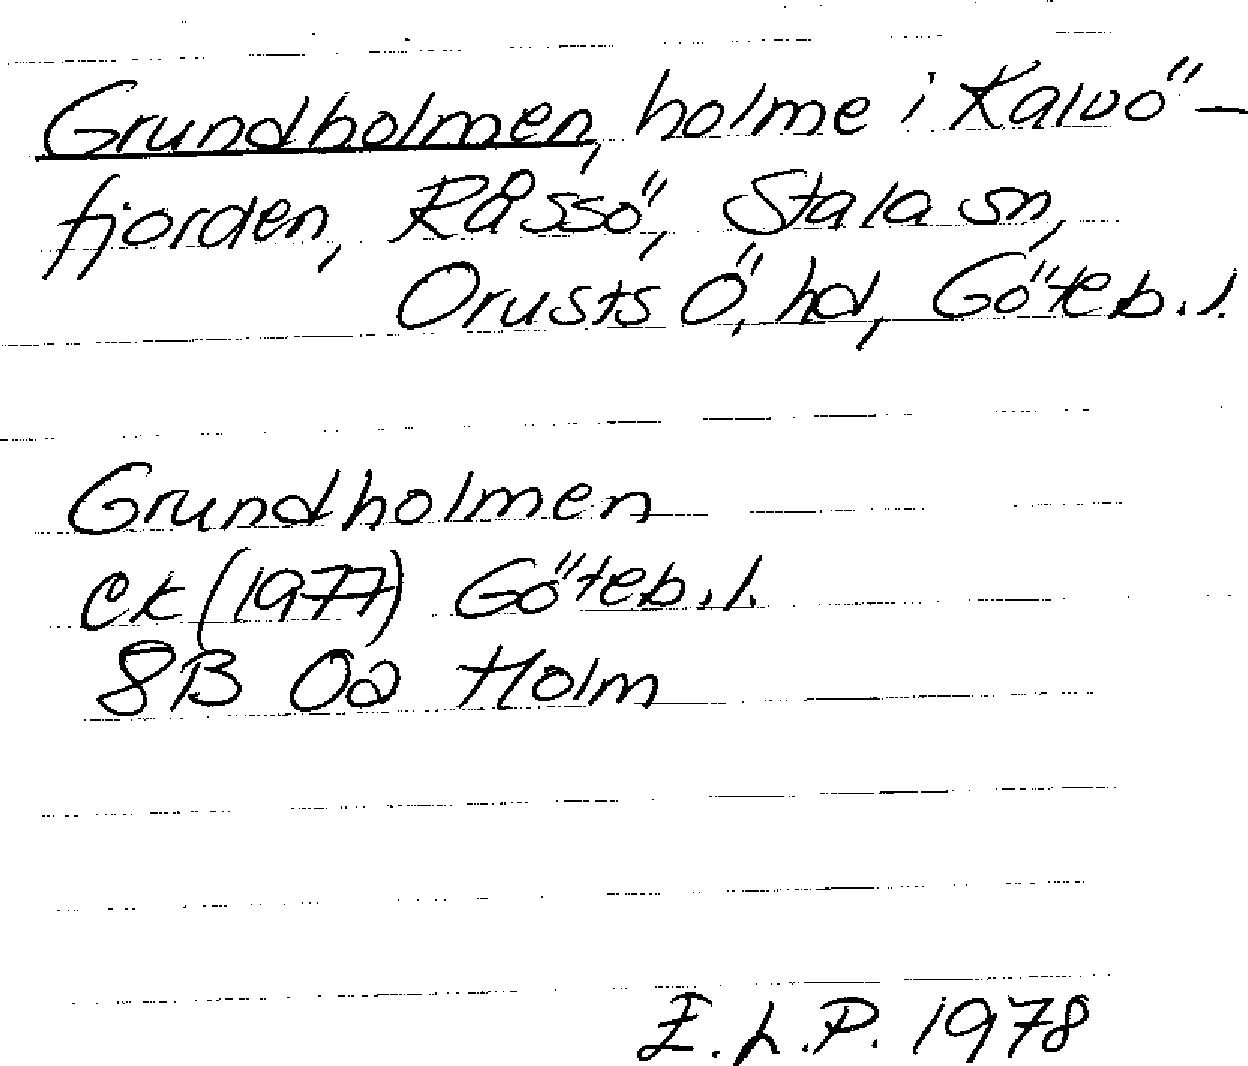 Grundholmen, holme i Kalvö-
fjorden, Råssö, Stala sn,
Orusts Ö, hd, Göteb.l.
Grundholmen
ek (1977) Göteb.l.
8B 0a Holm
E.L.P. 1978